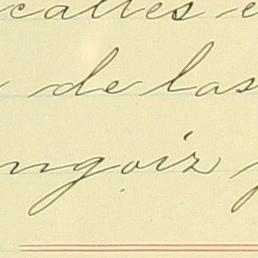 calles e
de las
ngoiz y